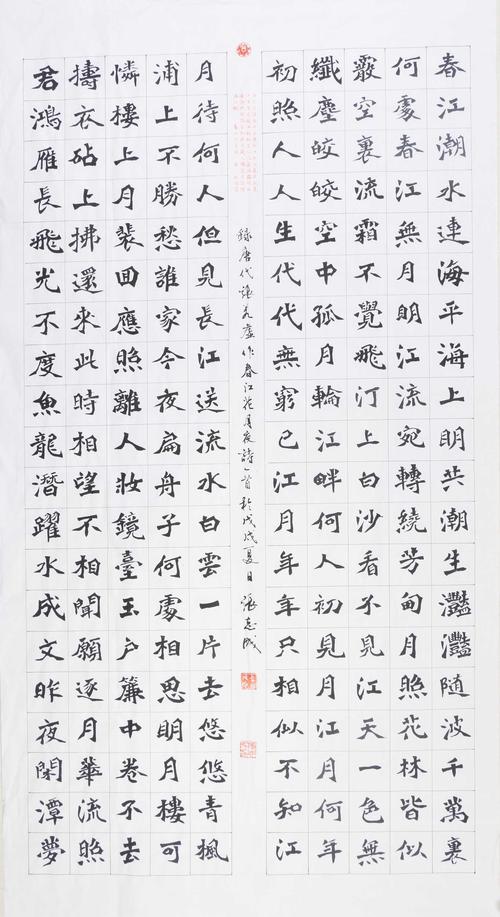 春江潮水連海平海上明共潮生灧灧随波千萬裏
何處春江無月明江流宛轉繞芳甸月照花林皆似
霰空裏流霜不覺飛汀上白沙看不見江天一色無
纖塵皎皎空中孤月輪江畔何人初見月江月何年
初照人人生代代無窮已江月年年只相似不知江
錄唐代張若虛作春江花月夜詩一首於戊戌夏日張志成
月待何人但見長江送流水白雲一片去悠悠青楓
浦上不勝愁誰家今夜扁舟子何處相思明月樓可
憐樓上月裴回應照離人妝鏡臺玉戶簾中卷不去
擣衣砧上拂還來此時相望不相聞願逐月華流照
君鴻雁長飛光不度魚龍潛躍水成文昨夜閑潭夢